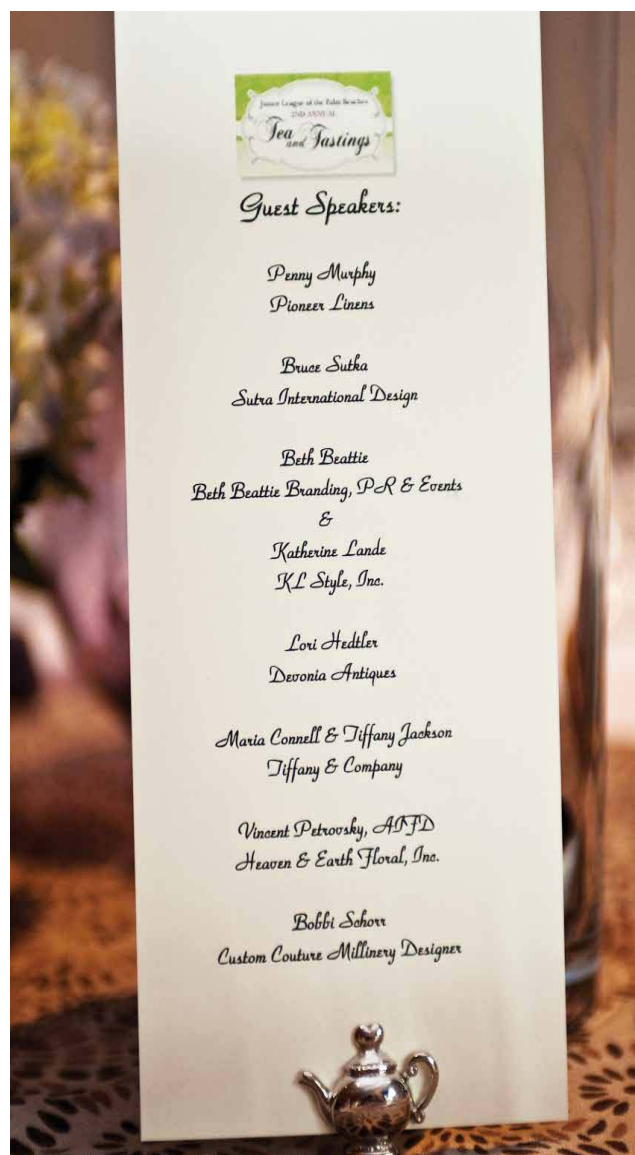 Junior League of the Palm Beaches
2ND ANNUAL
Tea and Tastings
Guest Speakers:
Penny Murphy
Pioneer Linens
Bruce Sutka
Sutra International Design
Beth Beattie
Beth Beattie Branding, PR & Events
&
Katherine Lande
KL Style, Inc.
Lori Hedtler
Devonia Antiques
Maria Connell & Tiffany Jackson
Tiffany & Company
Vincent Petrovsky, AIFD
Heaven & Earth Floral, Inc.
Bobbi Schorr
Custom Couture Millinery Designer